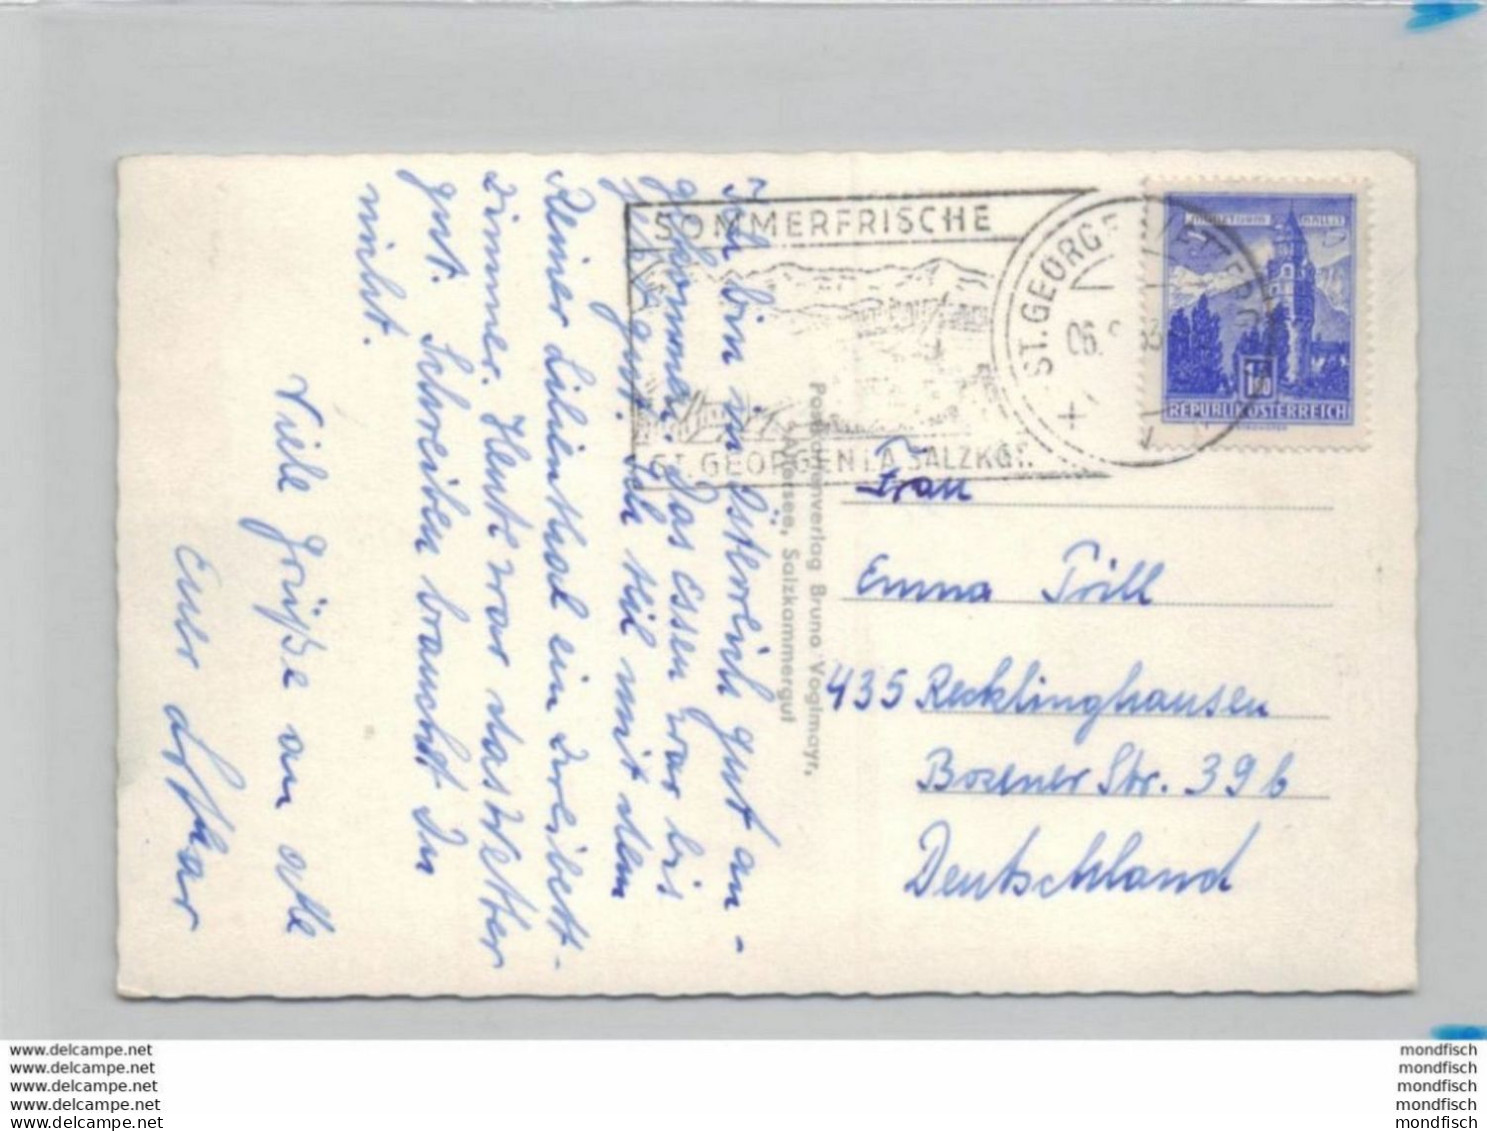 Ich bin in Österreich gut an-
gekommen. Das essen war bis
jetzt gut. Ich hil mit dem
Reiner Lilienthal ein Dreibett-
zimmer. Heute war das Wetter
gut. Schreiben braucht Du
nicht.
Viele Grüße an alle
Euer Lothar
SOMMERFRISCHE
ST. GEORGEN I.A. SALZKGT.
ST. GEORGEN
06.
REPUBLIK ÖSTERREICH
Postkartenverlag Bruno Voglmayr,
Attersee, Salzkammergut
Frau
Emma Trill
435 Recklinghausen
Bozener Str. 39b
Deutschland
www.delcampe.net
www.delcampe.net
www.delcampe.net
www.delcampe.net
www.delcampe.net
mondfisch
mondfisch
mondfisch
mondfisch
mondfisch